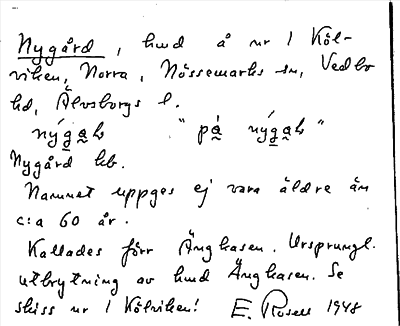 Nygård, hmd å nr 1 Köl-
viken, Norra, Nössemarks sn, Vedbo
hd, Älvsborgs l.
nýgaḷ "pá nýgaḷ"
Nygård hb.
Namnet uppges ej vara äldre än
c:a 60 år.
Kallades förr Änghasen. Ursprungl.
utbrytning av hmd Änghasen. Se
skiss nr 1 Kölviken! E. Rosell 1948